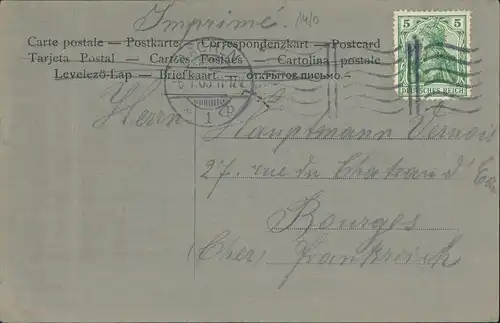 Imprimé.
Carte postale — Postkarte — Correspondenzkart — Postcard
Tarjeta Postal — Cartões Postaes — Cartolina postale
Levelező-Lap — Briefkaart — ОТКРЫТОЕ ПИСЬМО.—
5 5
DEUTSCHES REICH
1
Herrn Hauptmann Vernois
27. rue du Château d'Eau
Bourges
(Cher) Frankreich